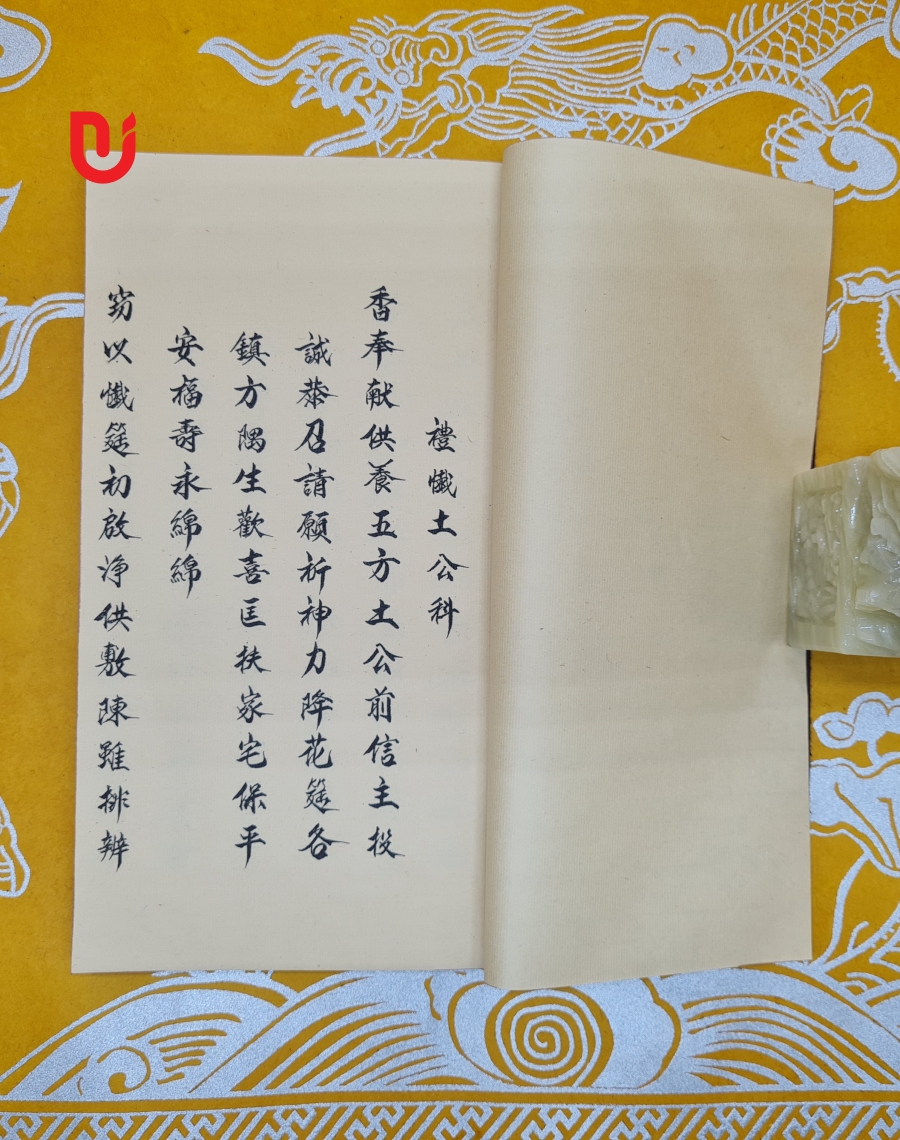 禮懺土公科
香奉献供養五方土公前信主投
誠恭召請願祈神力降花筵各
鎮方隅生歡喜匡扶家宅保平
安福壽永綿綿
窃以懺筵初啟净供敷陳雖排辨